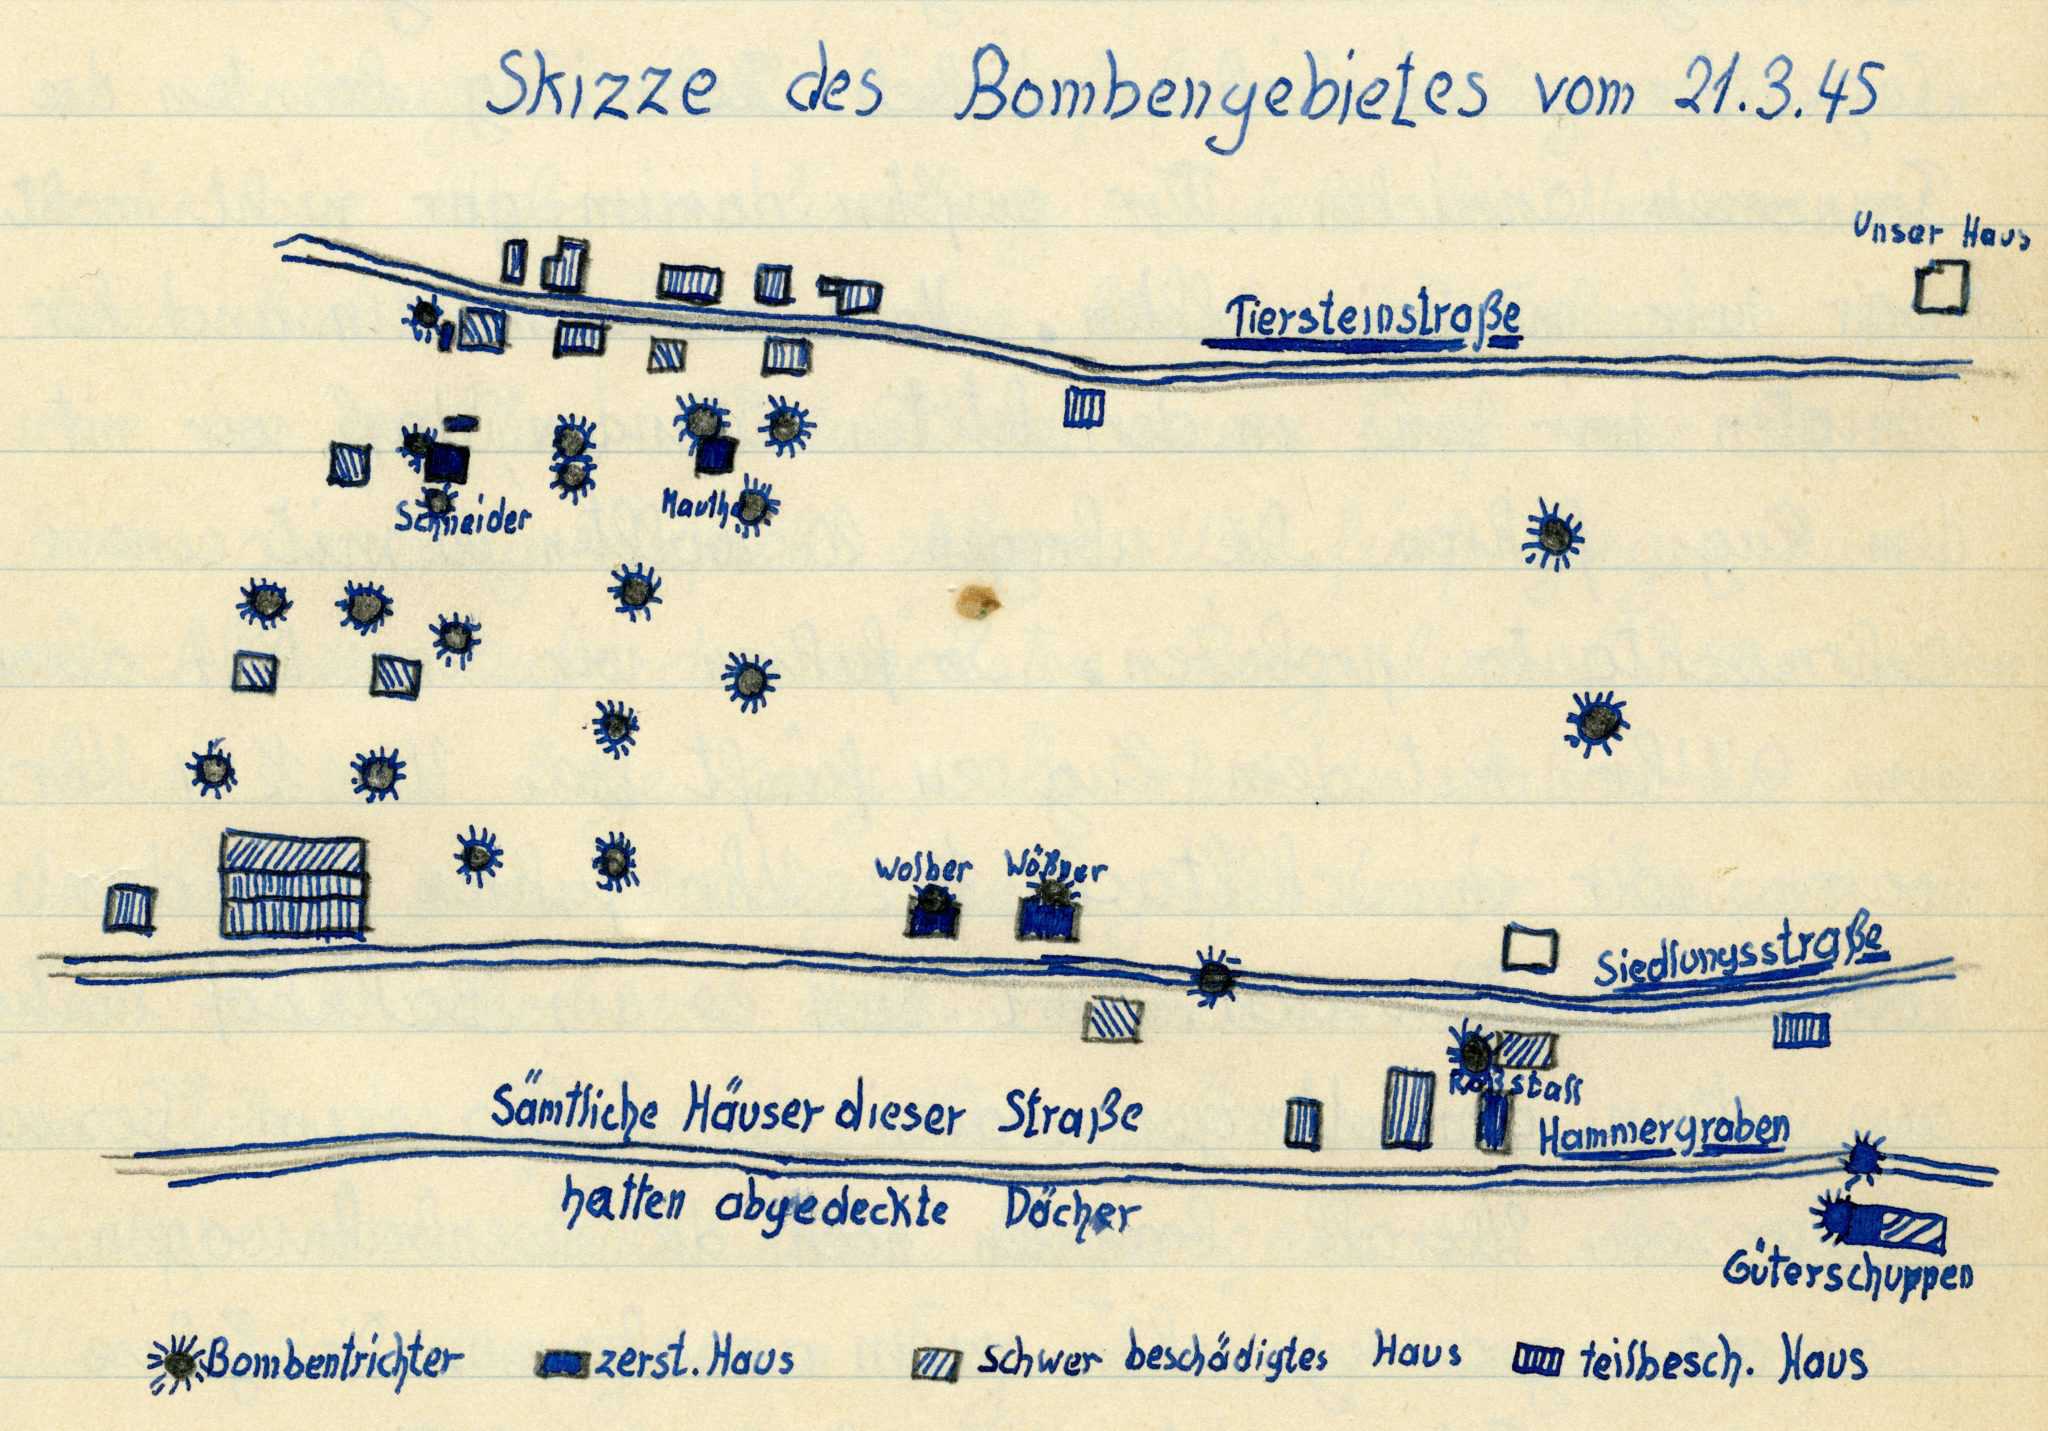 Skizze des Bombengebietes vom 21.3.45
Unser Haus
Tiersteinstraße
Schneider
Mauthe
Wolber
Wößner
Siedlungsstraße
Roßstall
Sämtliche Häuser dieser Straße
Hammergraben
hatten abgedeckte Dächer
Güterschuppen
Bombentrichter
zerst. Haus
schwer beschädigtes Haus
teilbesch. Haus